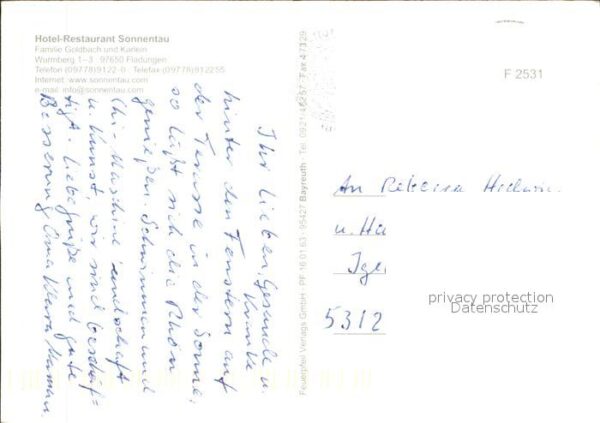 Hotel-Restaurant Sonnentau
Familie Goldbach und Karlein
Wurmberg 1–3 · 97650 Fladungen
Telefon (09778)9122-0 · Telefax-(09778)912255
Internet: www.sonnentau.com
e-mail: info@sonnentau.com
Ihr Lieben, Gesunde u.
Kranke
hinter den Fenstern auf
der Terasse in der Sonne,
so läßt sich die Rhön
genießen. Schwimmen und
Chi-Maschine Landschaft
u. Kunst, wir sind beschäf=
tigt. Liebe Grüße und gute
Besserung Oma Klara
Feuerpfeil Verlags GmbH · PF 16 01 63 · 95427 Bayreuth · Tel. 0921/46257 · Fax 47329
F 2531
An Rebecca
u. Ha
Ige
5312
privacy protection
Datenschutz